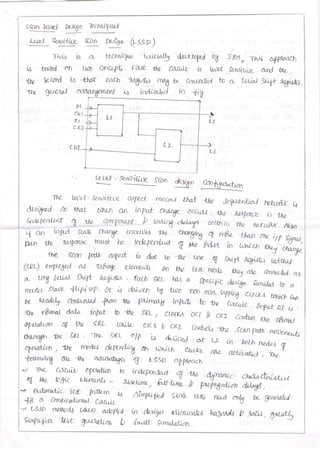 Scan based Design Techniques
Level Sensitive Scan Design (LSSD)
This is a technique initially developed by IBM, This approach
is based on two concepts First the circuit is level sensitive, and the
the second is that each register may be converted to a serial shift register.
The general arrangement is indicated in fig
L1
CK2
L2
L1
L2
Level-sensitive scan design configuration
The level-sensitive aspect means that the sequential network is
designed so that when an input change occurs, the response is
independent of the component & wiring delays within the network. Also
if an input state change involves the changing of more than one i/p signal,
then the response must be independent of the order in which they change
The scan path aspect is due to the use of shift register latches
(SRL) employed as storage elements. In the test mode, they are connected as
a long serial shift register. Each SRL has a specific design similar to a
master slave flipflop. It is driven by two non overlapping clocks which can
be readily controlled from the primary inputs to the circuit. Input D1 is
the normal data input to the SRL, clocks CK1 & CK2 control the normal
operation of the SRL while CK3 & CK2 controls the scan path movements
through the SRL. The SRL o/p is derived at L2 in both modes of
operation, the modes depending on which clocks are activated. The
following are the advantages of LSSD approach
→ The circuit operation is independent of the dynamic characteristics
of the logic elements - rise time, fall time & propagation delays.
→ Automatic test pattern is simplified since tests need only be generated
for a combinational circuit
→ LSSD methods when adopted in design eliminates hazards & races, greatly
simplifies test generation & fault simulation.